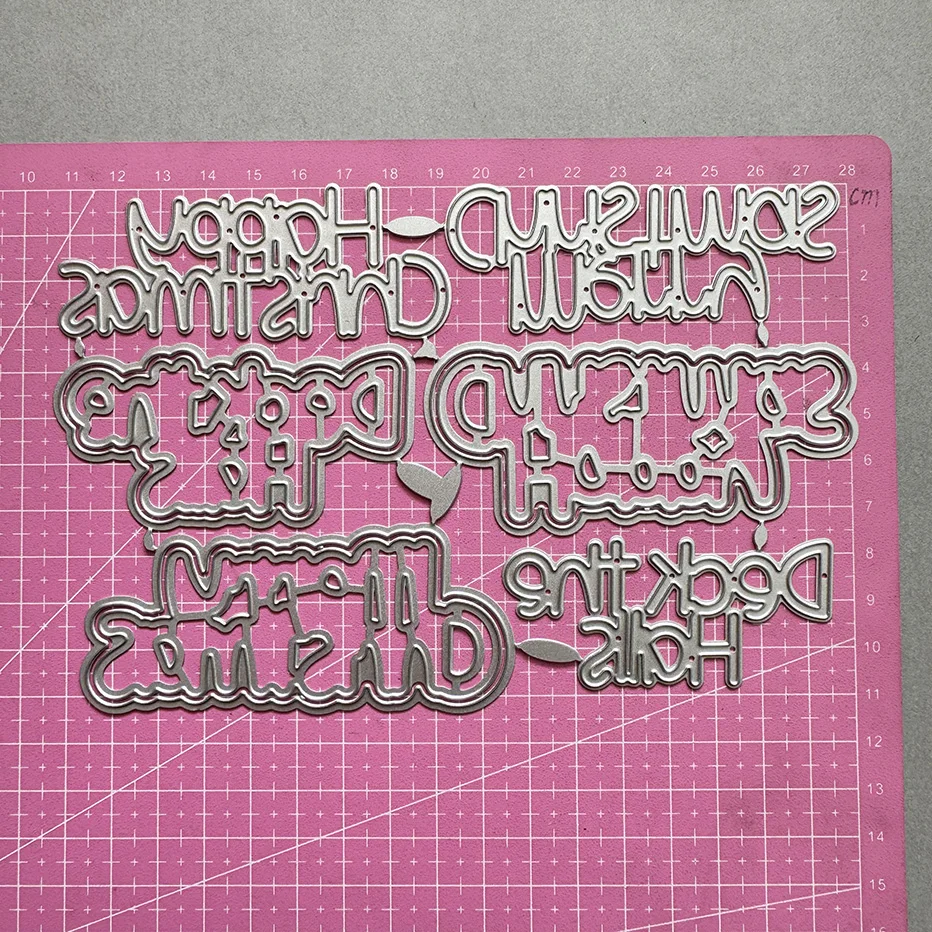 10 11 12 13 14 15 16 17 18 19 20 21 22 23 24 25 26 27 28
cm
Happy
Christmas
Merry
Christmas
Deck the
Halls
1
2
3
4
5
6
7
8
9
10
11
12
13
14
15